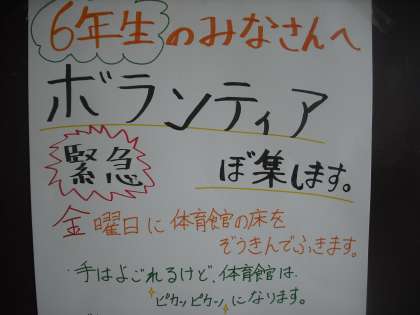 6年生のみなさんへ
ボランティア
緊急
ぼ集します。
金曜日に体育館の床を
ぞうきんでふきます。
手はよごれるけど、体育館は、
ピカッピカッになります。